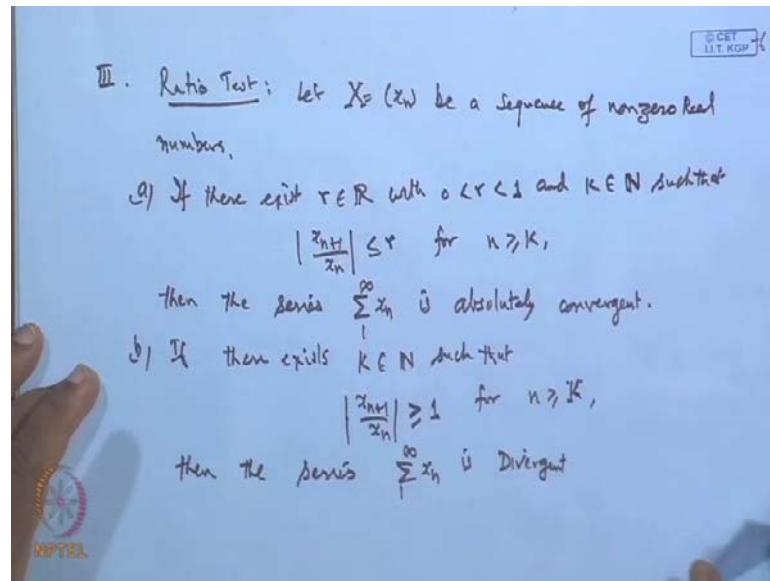 © CET
I.I.T. KGP
III. Ratio Test: Let X = (xn) be a sequence of nonzero Real
numbers,
a) If there exist r ∈ R with 0 < r < 1 and K ∈ N such that
|xn+1/xn| ≤ r for n ≥ K,
then the series ∑_1^∞ xn is absolutely convergent.
b) If there exists K ∈ N such that
|xn+1/xn| ≥ 1 for n ≥ K,
then the series ∑_1^∞ xn is Divergent
NPTEL